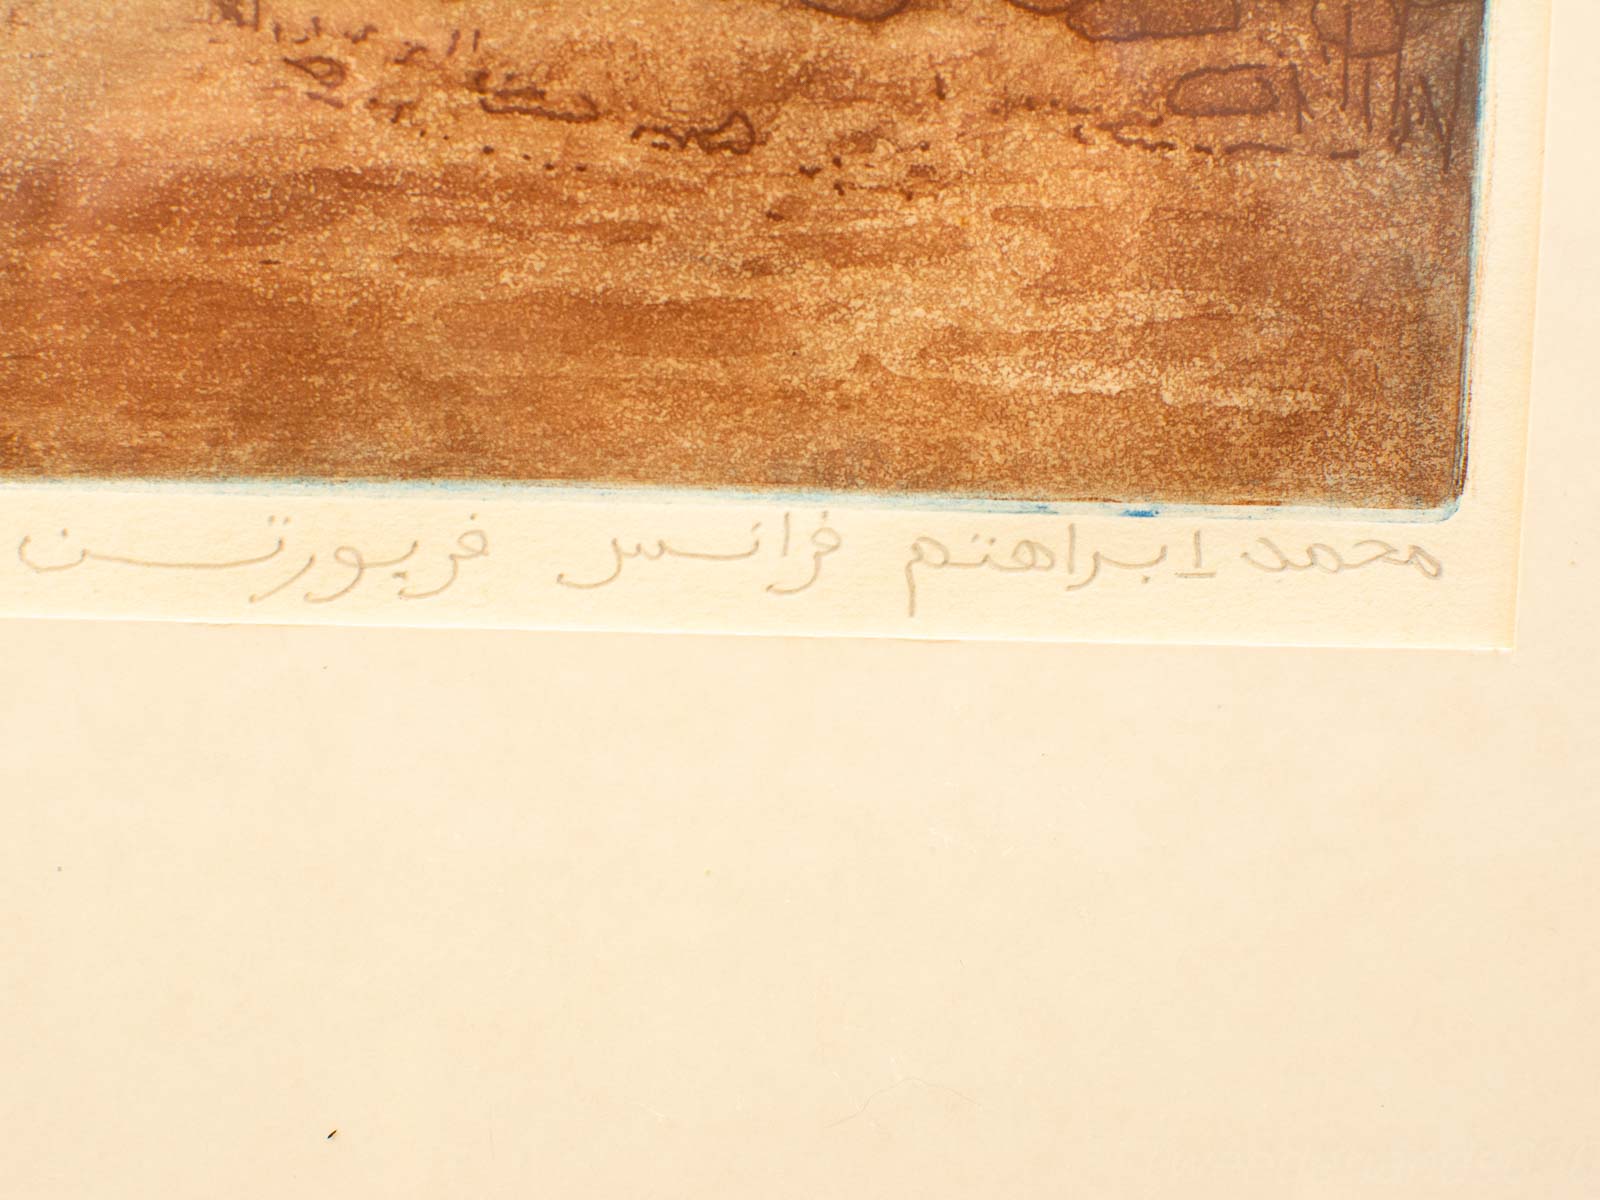 محمد إبراهتم فرانسس فريورتسن